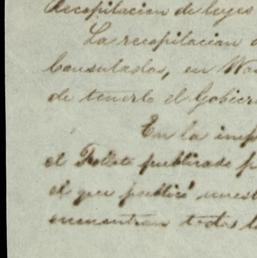 Recopilacion de leyes
La recopilacion d
Consulados, en Wa
de tenerlo el Gobier
En la imp
el Folleto publicado p
el que publicó nuest
encuentran todos l